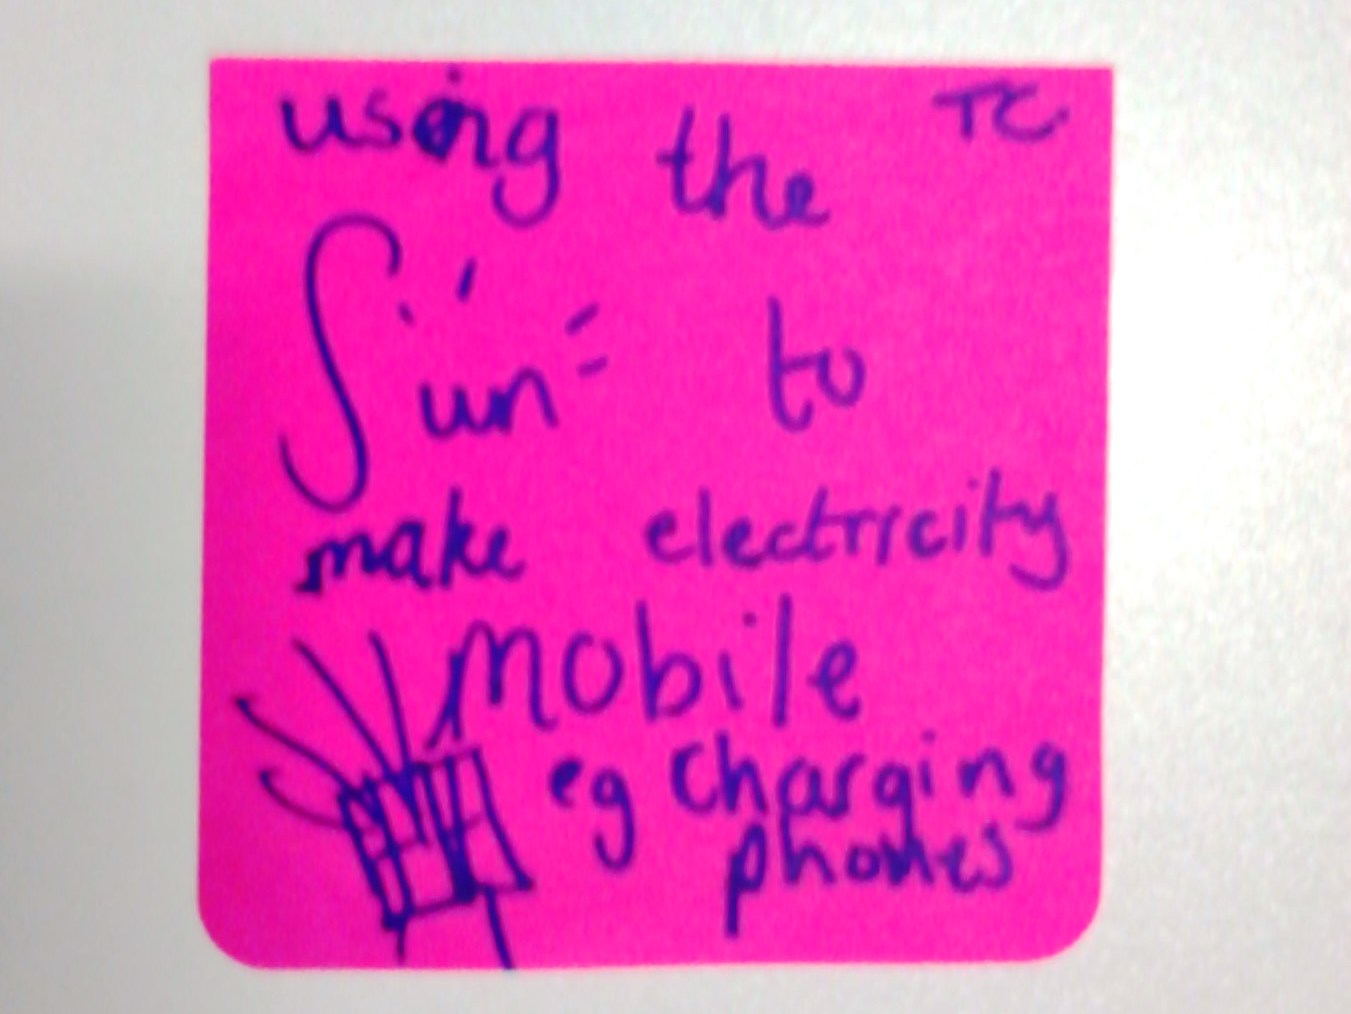 using the TC
Sun to
make electricity
mobile
eg charging
phones